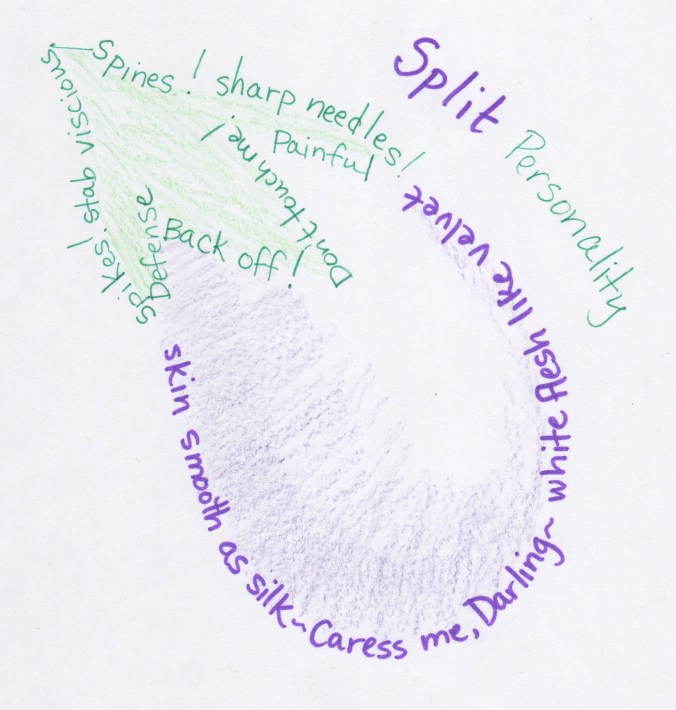 Split
Personality
Spines! sharp needles!
Painful
Don't touch me!
Back off!
Defense
spikes! stab viscious
skin smooth as silk~Caress me, Darling~ white flesh like velvet